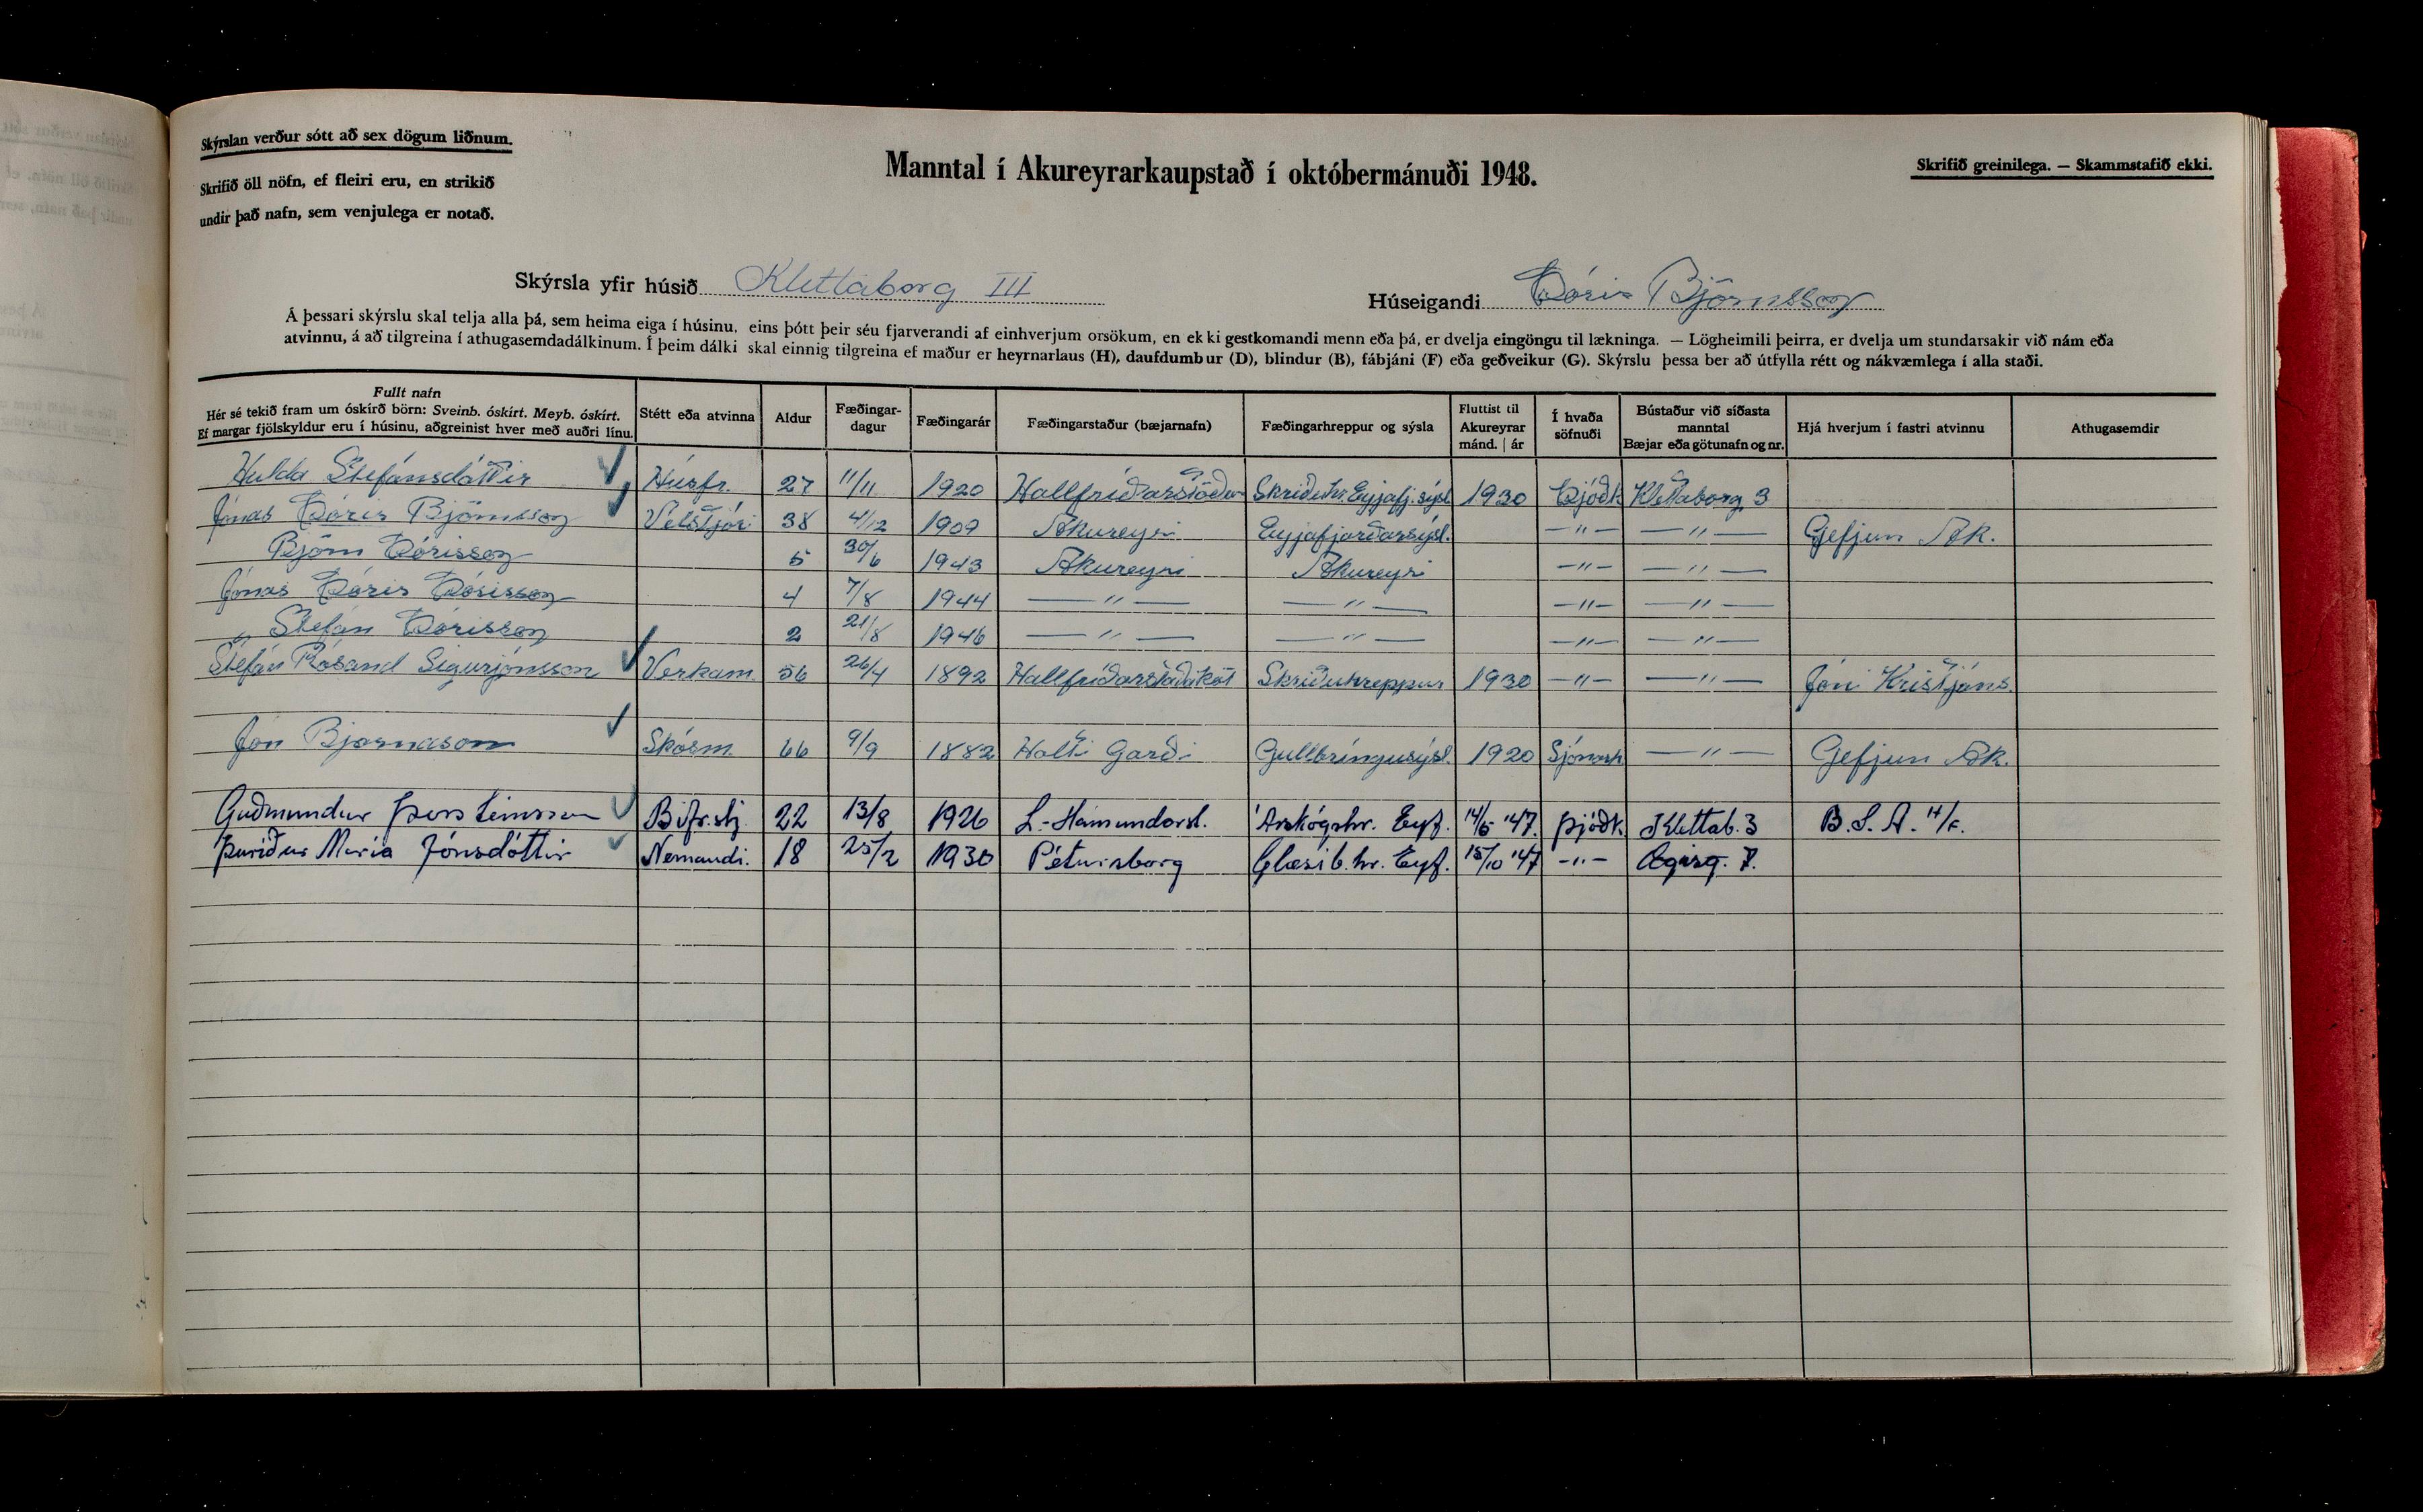 Skýrslan verður sótt að sex dögum liðnum.
Skrifið öll nöfn, ef fleiri eru, en strikið
undir það nafn, sem venjulega er notað.
Manntal í Akureyrarkaupstað í októbermánuði 1948.
Skrifið greinilega. — Skammstafið ekki.
Skýrsla yfir húsið Klettaborg III
Húseigandi Þórir Björnsson
Á þessari skýrslu skal telja alla þá, sem heima eiga í húsinu, eins þótt þeir séu fjarverandi af einhverjum orsökum, en ekki gestkomandi menn eða þá, er dvelja eingöngu til lækninga. — Lögheimili þeirra, er dvelja um stundarsakir við nám eða
atvinnu, á að tilgreina í athugasemdadálkinum. Í þeim dálki skal einnig tilgreina ef maður er heyrnarlaus (H), daufdumbur (D), blindur (B), fábjáni (F) eða geðveikur (G). Skýrslu þessa ber að útfylla rétt og nákvæmlega í alla staði.
Fullt nafn
Hér sé tekið fram um óskírð börn: Sveinb. óskírt. Meyb. óskírt.
Ef margar fjölskyldur eru í húsinu, aðgreinist hver með auðri línu.
Stétt eða atvinna
Aldur
Fæðingar-
dagur
Fæðingarár
Fæðingarstaður (bæjarnafn)
Fæðingarhreppur og sýsla
Fluttist til
Akureyrar
mánd. | ár
Í hvaða
söfnuði
Bústaður við síðasta
manntal
Bæjar eða götunafn og nr.
Hjá hverjum í fastri atvinnu
Athugasemdir
Hulda Stefánsdóttir Húsfr. 27 11/11 1920 Hallfríðarstöðum Skriðuhr. Eyjafj.sýsl. 1930 Þjóðk Klettaborg 3
Jónas Þórir Björnsson Vélstjóri 38 4/12 1909 Akureyri Eyjafjarðarsýsl. —"— —"— Gefjun Ak.
Björn Þórisson 5 30/6 1943 Akureyri Akureyri —"— —"—
Jónas Þórir Þórisson 4 7/8 1944 —"— —"— —"— —"—
" Stefán Þórisson 2 21/8 1946 —"— —"— —"— —"—
Stefán Rósand Sigurjónsson Verkam. 56 26/4 1892 Hallfríðarstaðakot Skriðuhreppur 1930 —"— —"— Jóni Kristjáns.
Jón Bjarnason Skósm. 66 9/9 1882 Holti Garði Gullbringusýsl. 1920 —"— Gefjun Ak.
Guðmundur Þorsteinsson Bifr.stj. 22 13/8 1926 L.-Hámundarst. Árskógshr. Eyf. 14/5 '47. Þjóðk. Klettab. 3 B.S.A. H/f.
Þuríður María Jónsdóttir Nemandi. 18 25/2 1930 Pétursborg Glæsib.hr. Eyf. 15/10 '47 -"- Ægisg. 7.